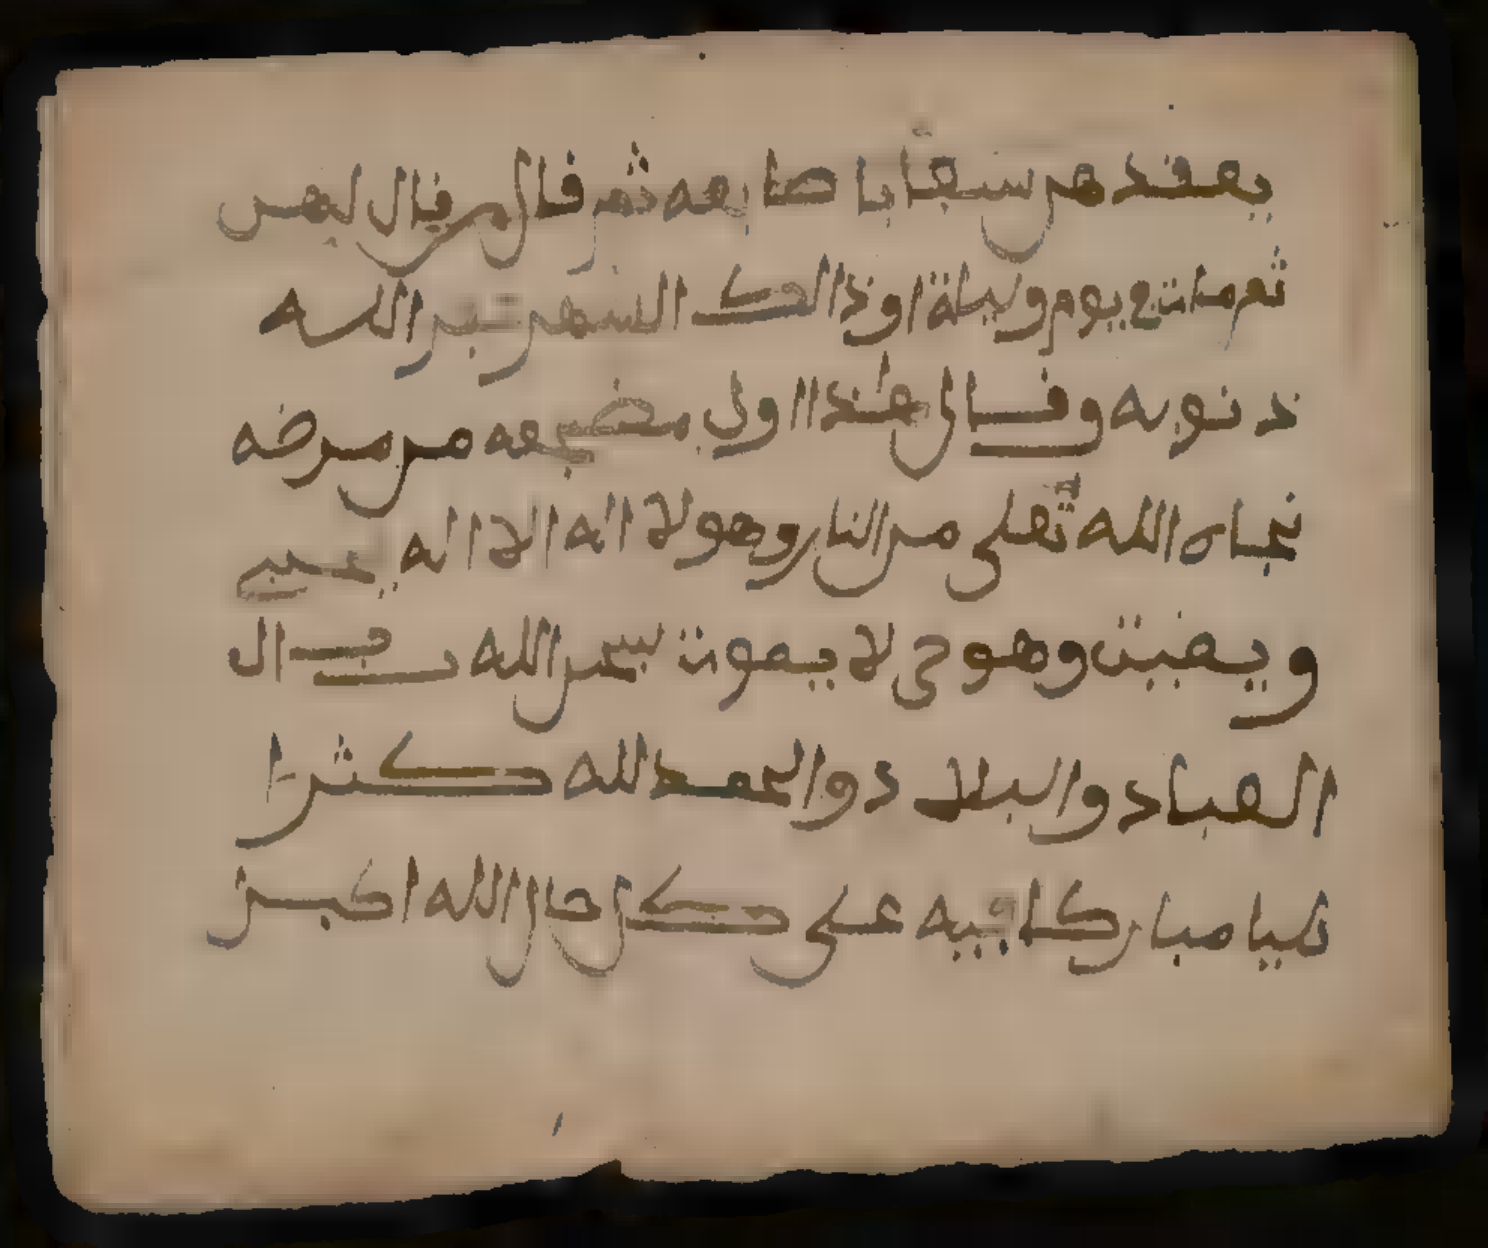 يعقدهن سبقا با صابعه ثم قال من قالهن
ثم مات في يوم وليلة او ذالك الشهر غبر الله
ذنوبه وقال هٰذا اول مضجعه من مرضه
نجاه الله تعلى من النار وهو لا اله الا اله يحيي
ويميت وهو حي لا يموت سبحن الله رب ال
العباد والبلاد والحمد لله كثرا
طيبا مباركا فيه على كل حال الله اكبر